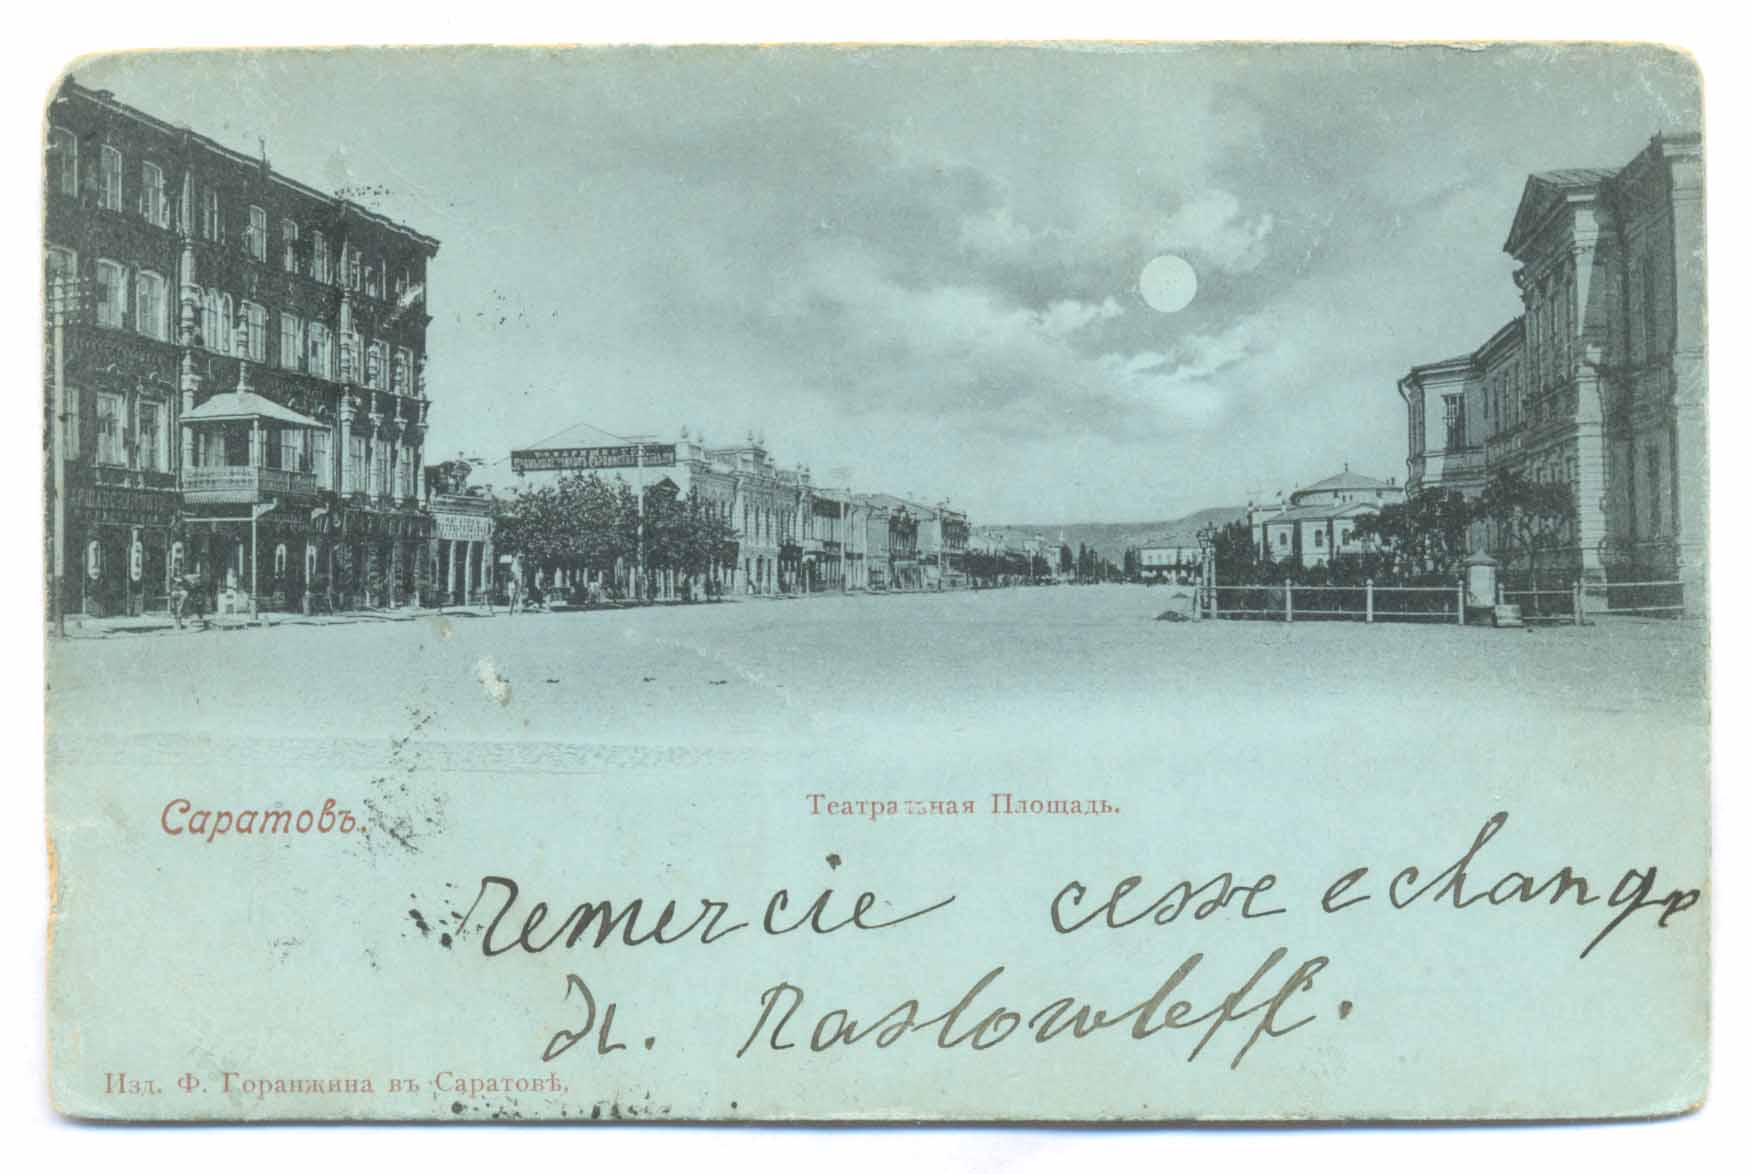 Саратовъ.
Театральная Площадь.
remercie cesse echange
N. Raslowleff.
Изд. Ф. Горанжина въ Саратовѣ.